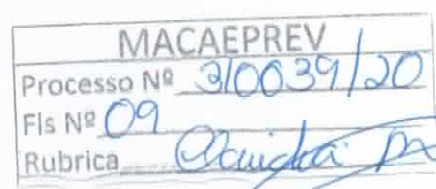 MACAEPREV
Processo Nº 310039/20
Fls Nº 09
Rubrica